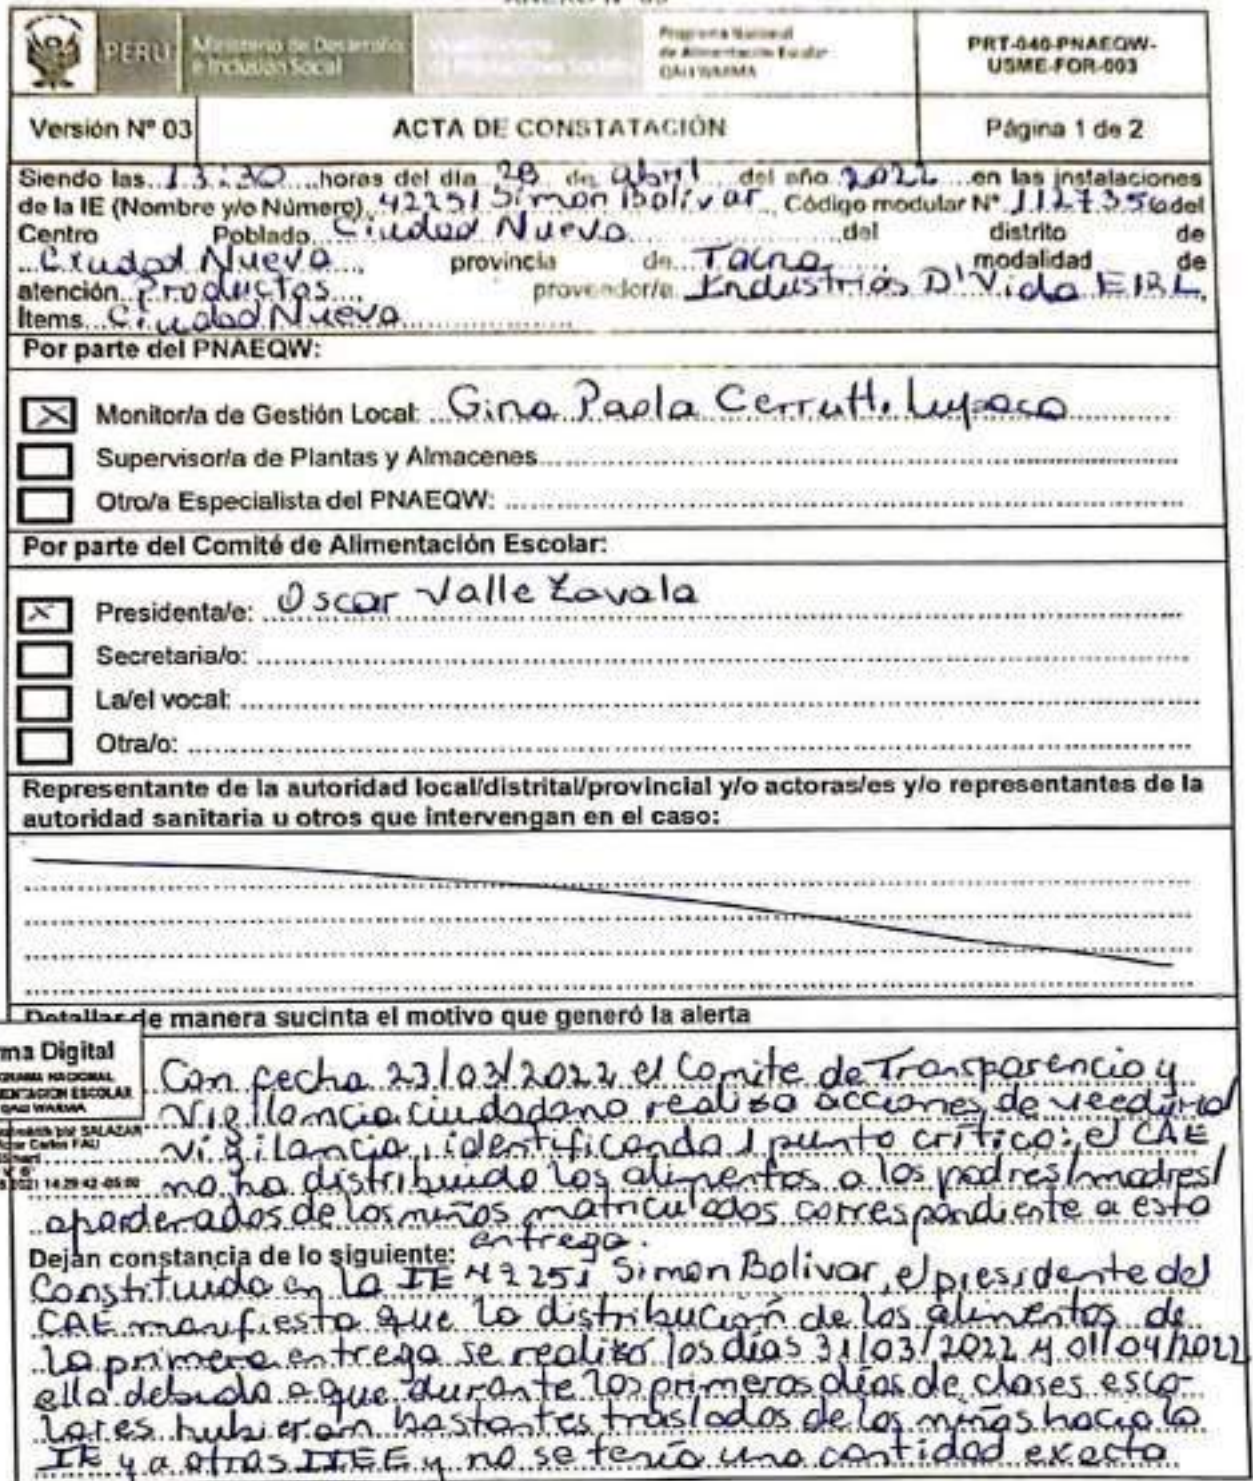 ANEXO N° 03
PERÚ
Ministerio de Desarrollo
e Inclusión Social
Programa Nacional
de Alimentación Escolar
QALI WARMA
PRT-040-PNAEQW-
USME-FOR-003
Versión Nº 03
ACTA DE CONSTATACIÓN
Página 1 de 2
Siendo las 13:30 horas del día 28 de abril del año 2022 en las instalaciones
de la IE (Nombre y/o Número) 42251 Simon Bolivar Código modular N° 1127356 del
Centro Poblado Ciudad Nueva del distrito de
Ciudad Nueva provincia de Tacna modalidad de
atención Productos proveedor/a Industrias D'Vida EIRL,
Ítems Ciudad Nueva
Por parte del PNAEQW:
Monitor/a de Gestión Local: Gina Paola Cerrutti Lupaca
Supervisor/a de Plantas y Almacenes
Otro/a Especialista del PNAEQW:
Por parte del Comité de Alimentación Escolar:
Presidenta/e: Oscar Valle Zavala
Secretaria/o:
La/el vocal:
Otra/o:
Representante de la autoridad local/distrital/provincial y/o actoras/es y/o representantes de la
autoridad sanitaria u otros que intervengan en el caso:
Detallar de manera sucinta el motivo que generó la alerta
ma Digital
NACIONAL
ESCOLAR
QALI WARMA
por SALAZAR
Carlos FAU
2021 14:29:42 -05:00
Con fecha 23/03/2022 el Comite de Transparencia y
Vigilancia ciudadana realizo acciones de veeduria/
vigilancia, identificando 1 punto critico: el CAE
no ha distribuido los alimentos a los padres/madres/
apoderados de los niños matriculados correspondiente a esta
entrega.
Dejan constancia de lo siguiente:
Constituida en la IE 42251 Simon Bolivar, el presidente del
CAE manifiesta que la distribución de los alimentos de
la primera entrega se realizó los días 31/03/2022 y 01/04/2022
ello debido a que durante los primeros días de clases esco-
lares hubieron bastantes traslados de los niños hacia la
IE y a otras IIEE y no se tenía una cantidad exacta